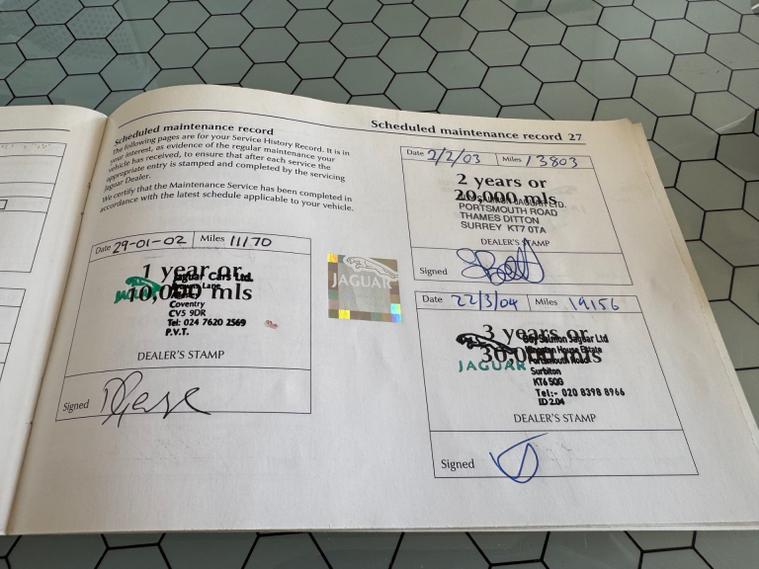 Scheduled maintenance record
The following pages are for your Service History Record. It is in
your interest, as evidence of the regular maintenance your
vehicle has received, to ensure that after each service the
appropriate entry is stamped and completed by the servicing
Jaguar Dealer.
We certify that the Maintenance Service has been completed in
accordance with the latest schedule applicable to your vehicle.
Date 29-01-02 Miles 11170
1 year or
10,000 mls
Jaguar Cars Ltd.
JAGUAR
Lane
Coventry
CV5 9DR
Tel: 024 7620 2569
P.V.T.
DEALER'S STAMP
Signed
JAGUAR
Scheduled maintenance record 27
Date 2/2/03 Miles 13803
2 years or
20,000 mls
PORTSMOUTH ROAD
THAMES DITTON
SURREY KT7 0TA
DEALER'S STAMP
Signed
Date 22/3/04 Miles 19156
3 years or
30,000 mls
Guy Salmon Jaguar Ltd
House Estate
Portsmouth Road
JAGUAR
Surbiton
KT6 5QG
Tel:- 020 8398 8966
ID 2.04
DEALER'S STAMP
Signed